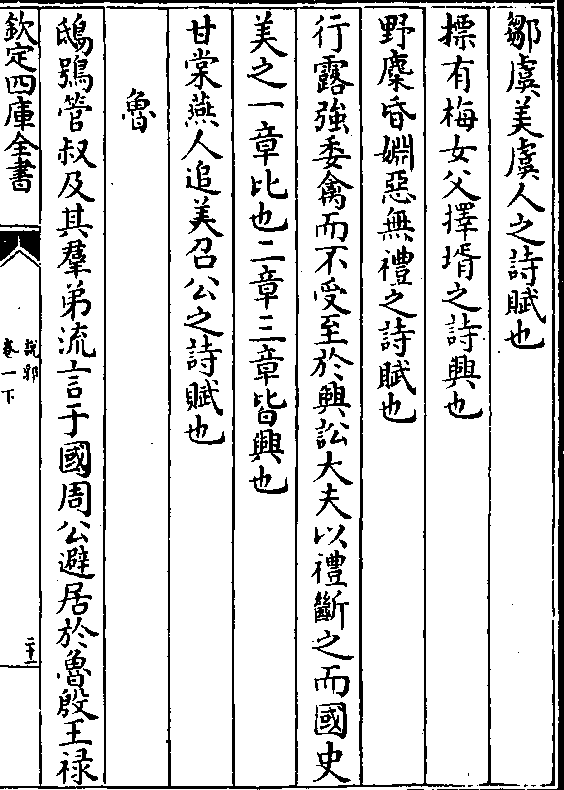 鄒虞美虞人之詩賦也
摽有梅女父擇壻之詩興也
野麇昏婣惡無禮之詩賦也
行露強委禽而不受至於興訟大夫以禮斷之而國史
美之一章比也二章三章皆興也
甘棠燕人追美召公之詩賦也
魯
鴟鴞管叔及其羣弟流言于國周公避居於魯殷王祿
欽定四庫全書
說郛
卷一下
二十一